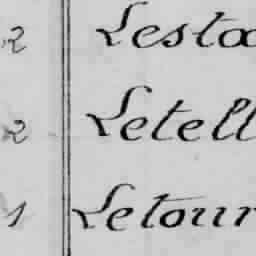 2 Lesta
2 Letell
1 Letour